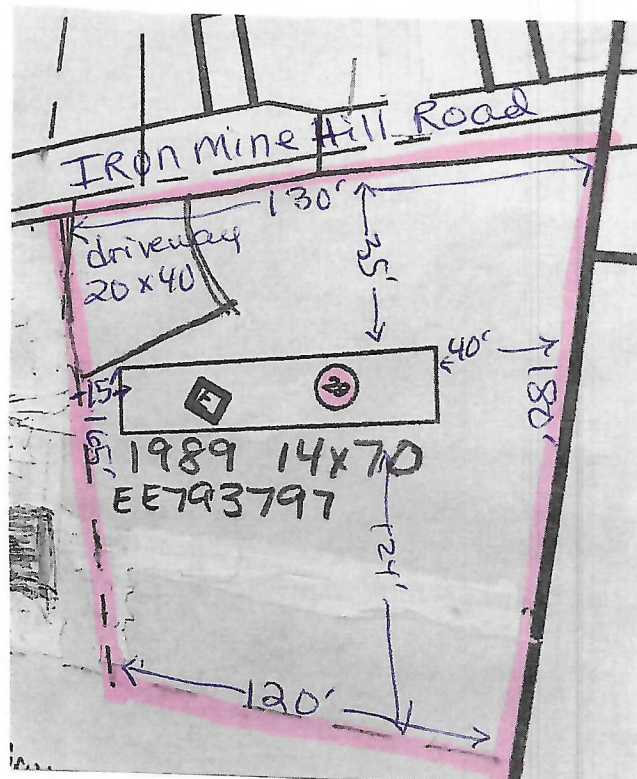 Iron Mine Hill Road
130'
driveway
20 x 40
35'
40'
15'
165'
180'
F
20
1989 14x70
EE793797
124'
120'